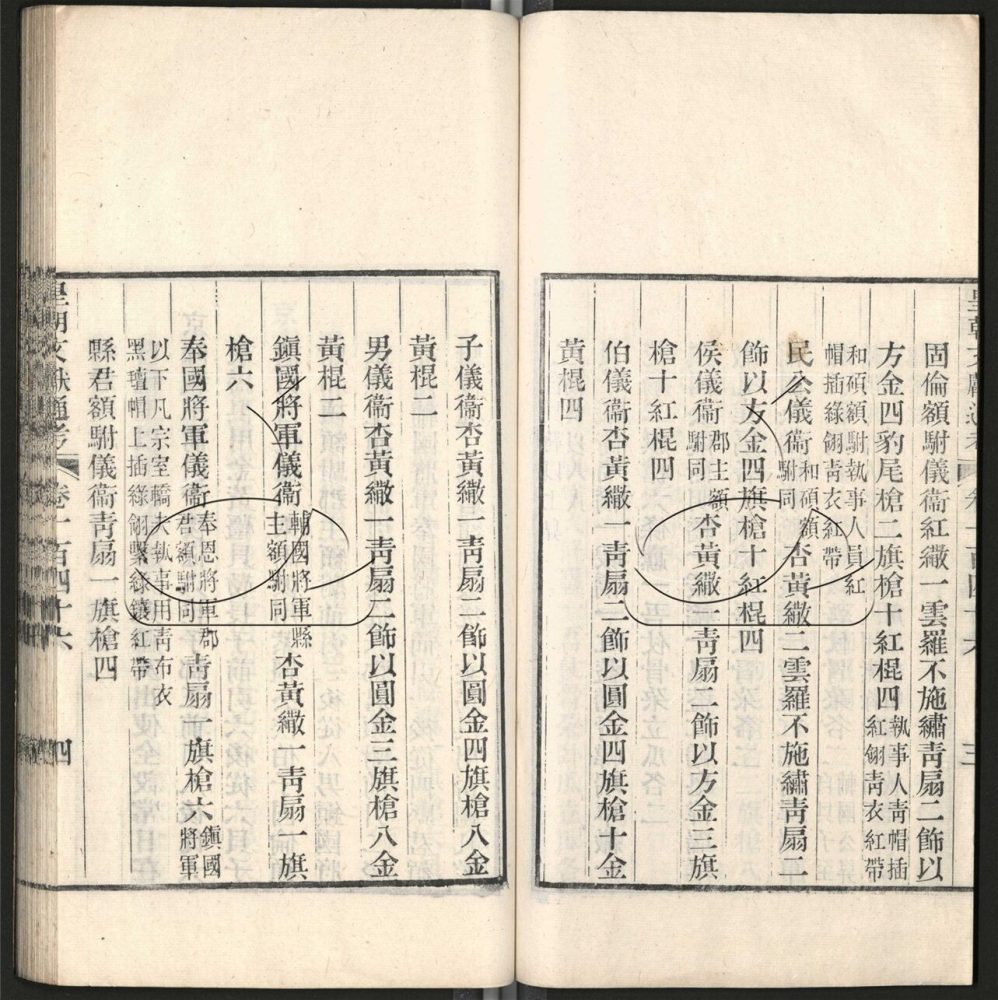 固倫額駙儀衞紅繖一雲羅不施繡靑扇二飾以
方金四豹尾槍二旗槍十紅棍四執事人靑帽插
紅翎靑衣紅帶
和碩額駙執事人員紅
帽插綠翎靑衣紅帶
民公儀衞和碩額
駙同杏黃繖二雲羅不施繡靑扇二
飾以方金四旗槍十紅棍四
侯儀衞郡主額
駙同杏黃繖一靑扇二飾以方金三旗
槍十紅棍四
伯儀衞杏黃繖一靑扇二飾以圓金四旗槍十金
黃棍四
皇朝文獻通考 卷一百四十六 三
子儀衞杏黃繖一靑扇二飾以圓金四旗槍八金
黃棍二
男儀衞杏黃繖一靑扇二飾以圓金三旗槍八金
黃棍二
鎭國將軍儀衞輔國將軍縣
主額駙同杏黃繖一靑扇一旗
槍六
奉國將軍儀衞奉恩將軍郡
君額駙同靑扇一旗槍六鎭國
將軍
以下凡宗室轎夫執事用靑布衣
黑氊帽上插綠翎繫綠鑲紅帶
縣君額駙儀衞靑扇一旗槍四
皇朝文獻通考 卷一百四十六 四